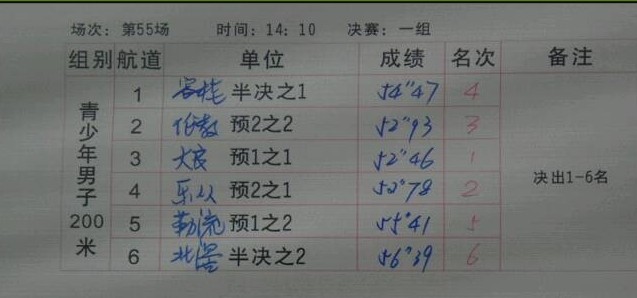 场次：第55场 时间：14：10 决赛：一组
组别 航道 单位 成绩 名次 备注
青少年男子200米
1 容桂 半决之1 54"47 4
2 伦教 预2之2 52"93 3
3 大良 预1之1 52"46 1
4 乐从 预2之1 52"78 2
5 勒流 预1之2 55"41 5
6 北滘 半决之2 56"39 6
决出1-6名